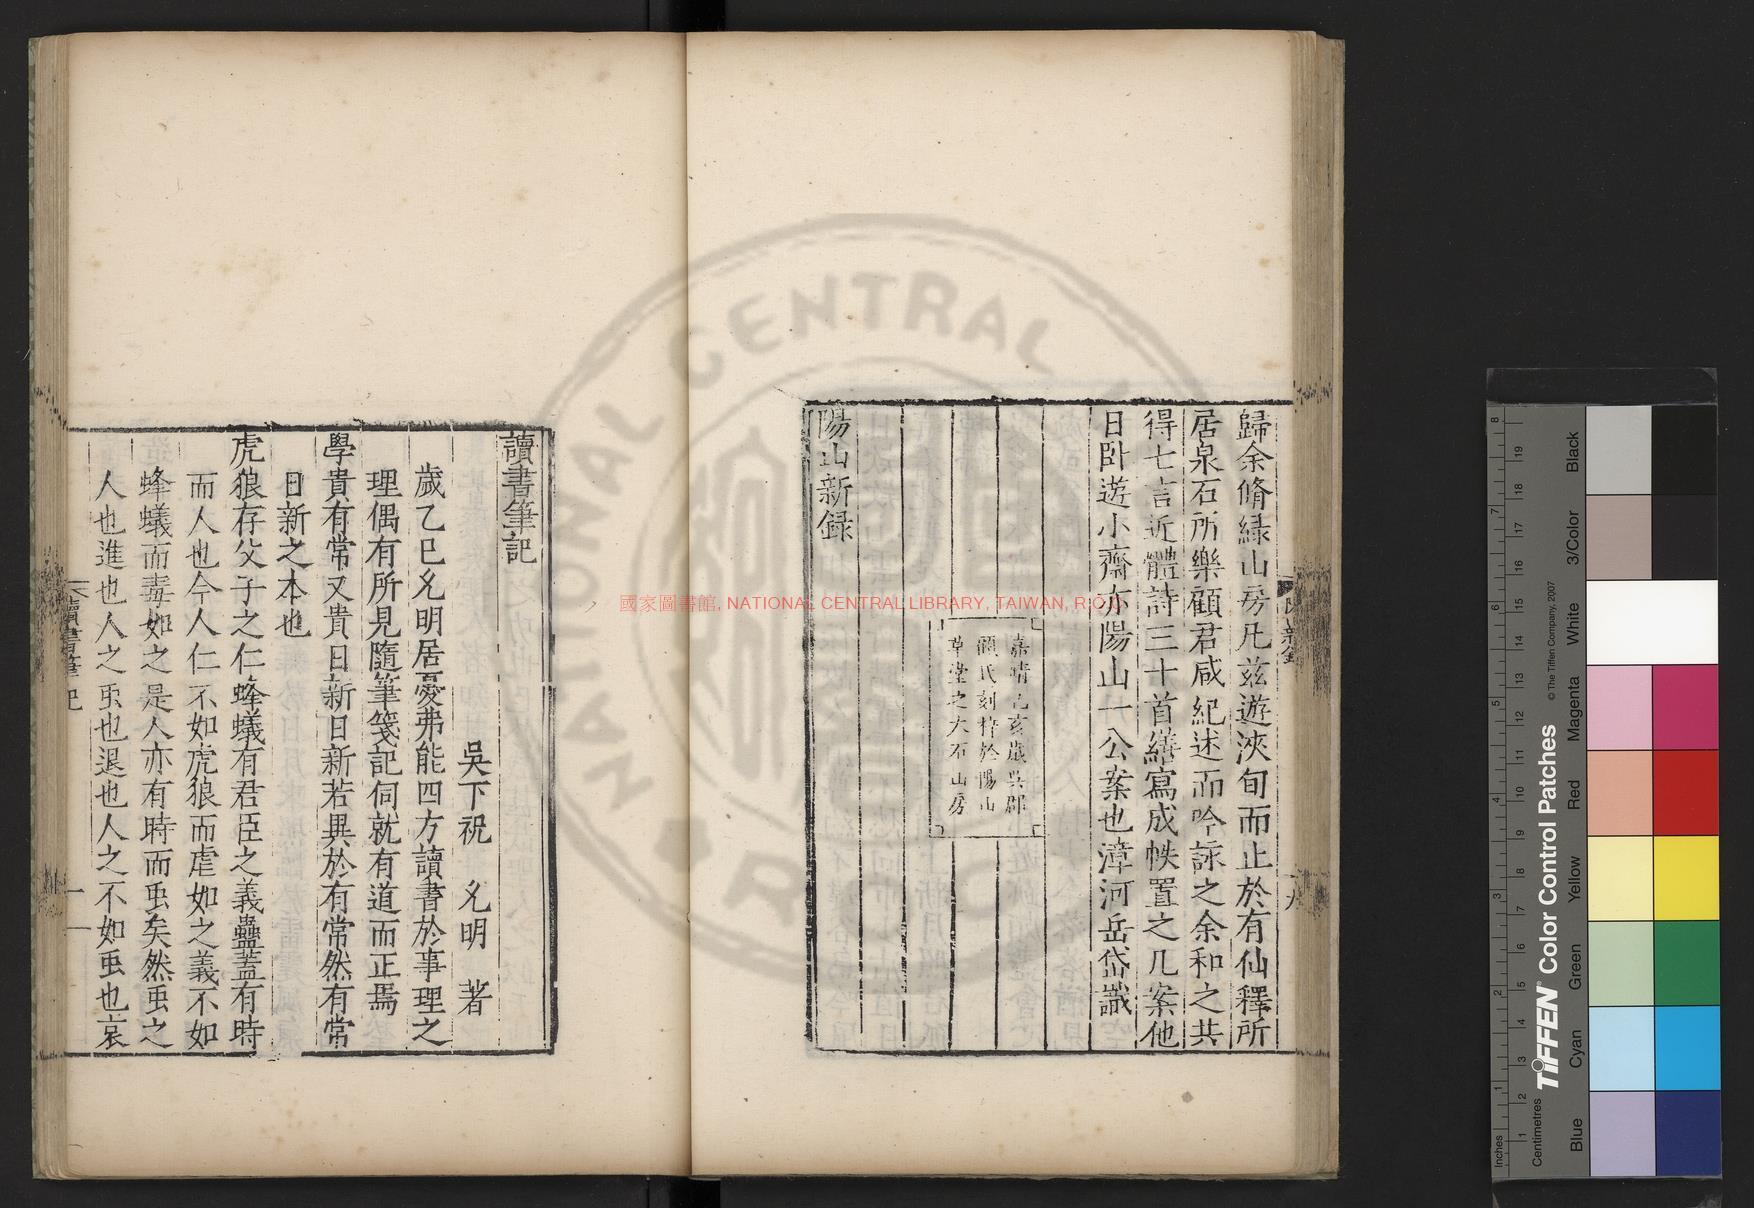 歸余脩緑山房凡兹遊浹旬而止於有仙釋所
居泉石所樂顧君咸紀述而吟詠之余和之共
得七言近體詩三十首繕寫成帙置之几案他
日卧遊小齋亦陽山一公案也漳河岳岱識
嘉靖乙亥歲吳郡
顧氏刻梓於陽山
草堂之大石山房
陽山新録
讀書筆記
吳下祝 允明 著
歲乙巳允明居憂弗能四方讀書於事理之
理偶有所見隨筆箋記伺就有道而正焉
學貴有常又貴日新日新若異於有常然有常
日新之本也
虎狼存父子之仁蜂蟻有君臣之義蠱蓋有時
而人也今人仁不如虎狼而虐如之義不如
蜂蟻而毒如之是人亦有時而䖝矣然䖝之
人也進也人之䖝也退也人之不如䖝也哀
讀書筆記
一
九
國家圖書館, NATIONAL CENTRAL LIBRARY, TAIWAN, R.O.C
NATIONAL CENTRAL L
TIFFEN® Color Control Patches
© The Tiffen Company, 2007
Inches
Centimetres
Blue
Cyan
Green
Yellow
Red
Magenta
White
3/Color
Black